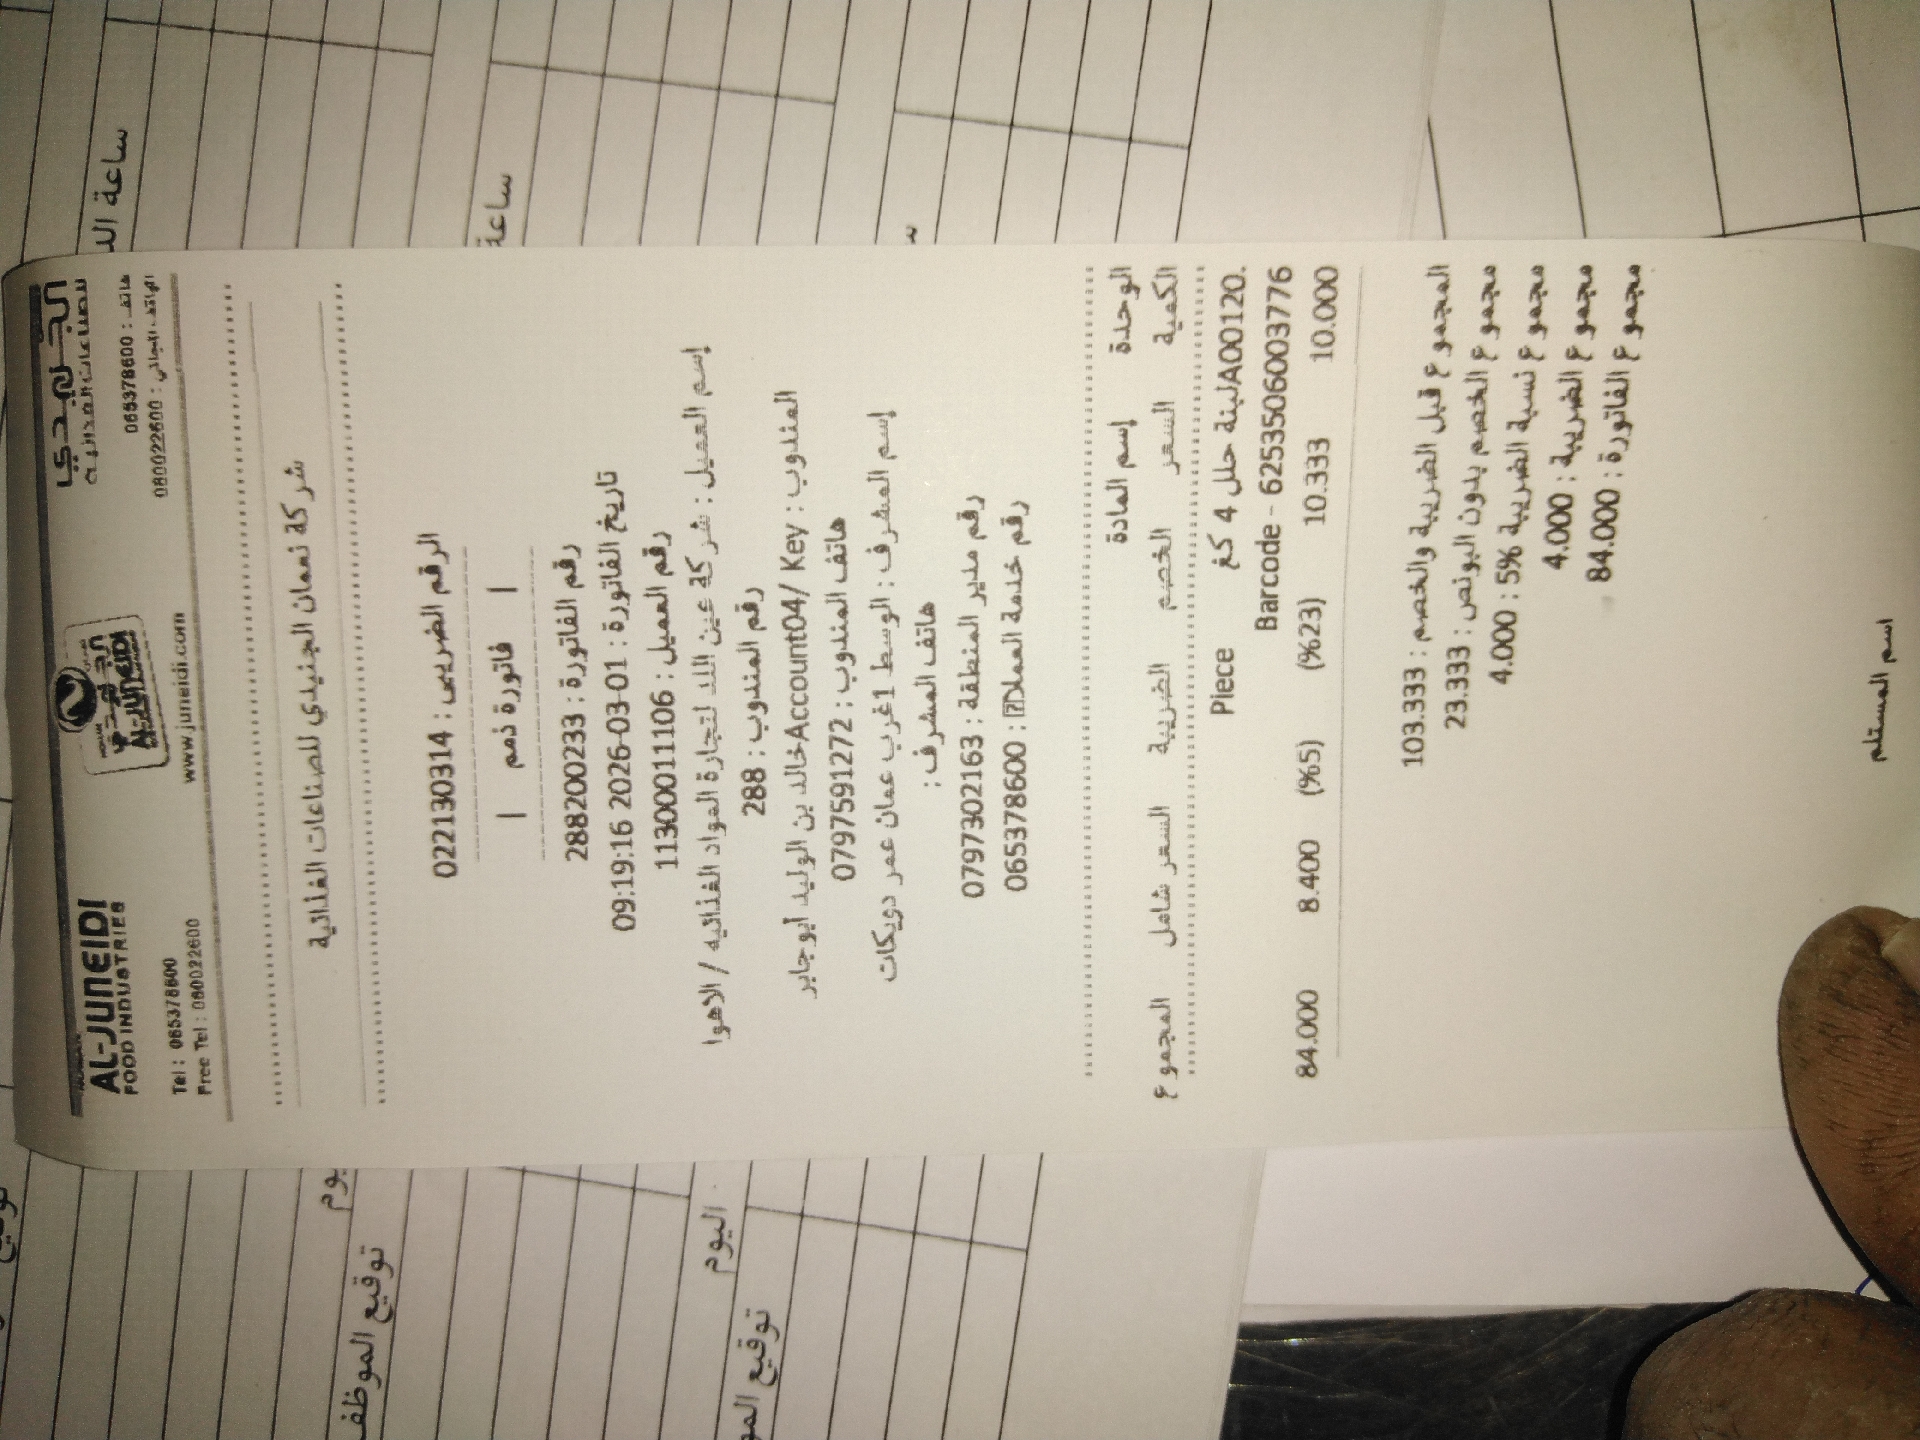 NOMAN
AL-JUNEIDI
FOOD INDUSTRIES
Tel : 065378600
Free Tel : 080022600
AL-JUNEIDI
www.juneidi.com
الجنيدي
للصناعات الغذائية
هاتف : 065378600
الهاتف المجاني : 080022600
شركة نعمان الجنيدي للصناعات الغذائية
الرقم الضريبي : 022130314
| فاتورة ذمم |
رقم الفاتورة : 288200233
تاريخ الفاتورة : 01-03-2026 09:19:16
رقم العميل : 1130001106
إسم العميل : شركة عين اللد لتجارة المواد الغذائيه / الاهوا
رقم المندوب : 288
المندوب : Account04/ Keyخالد بن الوليد أبوجابر
هاتف المندوب : 0797591272
إسم المشرف : الوسط 1غرب عمان عمر دويكات
هاتف المشرف :
رقم مدير المنطقة : 0797302163
رقم خدمة العملا : 065378600
الوحدة إسم المادة
الكمية السعر الخصم الضريبة السعر شامل المجموع
A00120.لبنة حلل 4 كغ Piece
Barcode - 6253506003776
10.000 10.333 (%23) (%5) 8.400 84.000
المجموع قبل الضريبة والخصم : 103.333
مجموع الخصم بدون البونص : 23.333
مجموع نسبة الضريبة 5% : 4.000
مجموع الضريبة : 4.000
مجموع الفاتورة : 84.000
اسم المستلم
ساعة
توقيع الموظف
اليوم